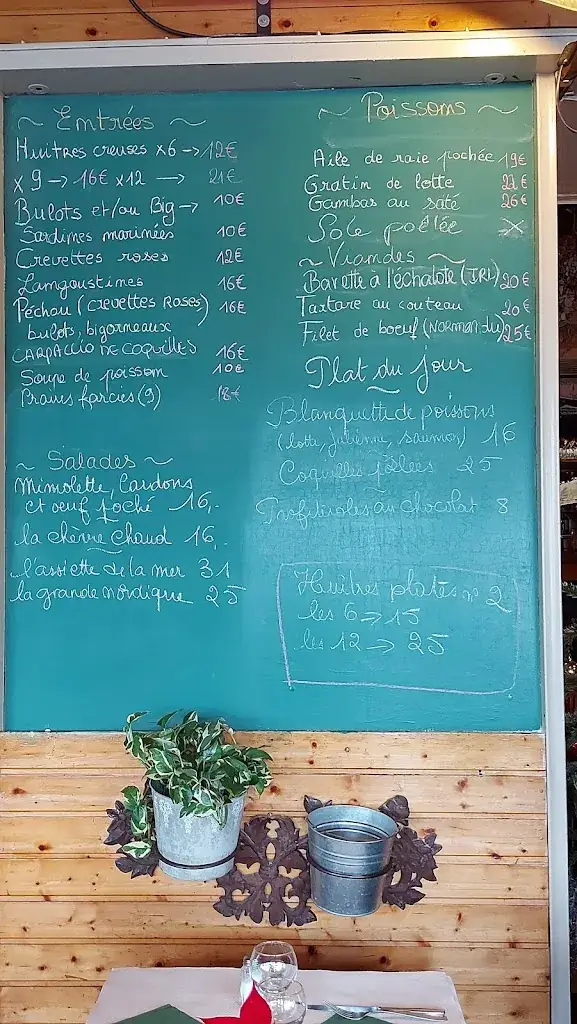 ~ Entrées ~
Huitres creuses x6 → 12€
x 9 → 16€ x12 → 21€
Bulots et/ou Big → 10€
Sardines marinées 10€
Crevettes roses 12€
Langoustines 16€
Péchou (crevettes roses) 16€
bulots, bigorneaux
CARPACCIO DE COQUILLES 16€
Soupe de poisson 10€
Praires farcies (9) 18€
~ Salades ~
Mimolette, Lardons
et oeuf poché 16,-
la chèvre chaud 16,-
l'assiette de la mer 31
la grande nordique 25
~ Poissons ~
Aile de raie pochée 19€
Gratin de lotte €
Gambas au saté 26€
Sole poêlée X
~ Viandes ~
Bavette à l'échalote (IRL) 20€
Tartare au couteau 20€
Filet de boeuf (NORMANDIE) 25€
Plat du jour
Blanquette de poissons
(lotte, julienne, saumon) 16
Coquilles poêlées 25
Profiteroles au chocolat 8
Huîtres plates n° 2
les 6 → 15
les 12 → 25